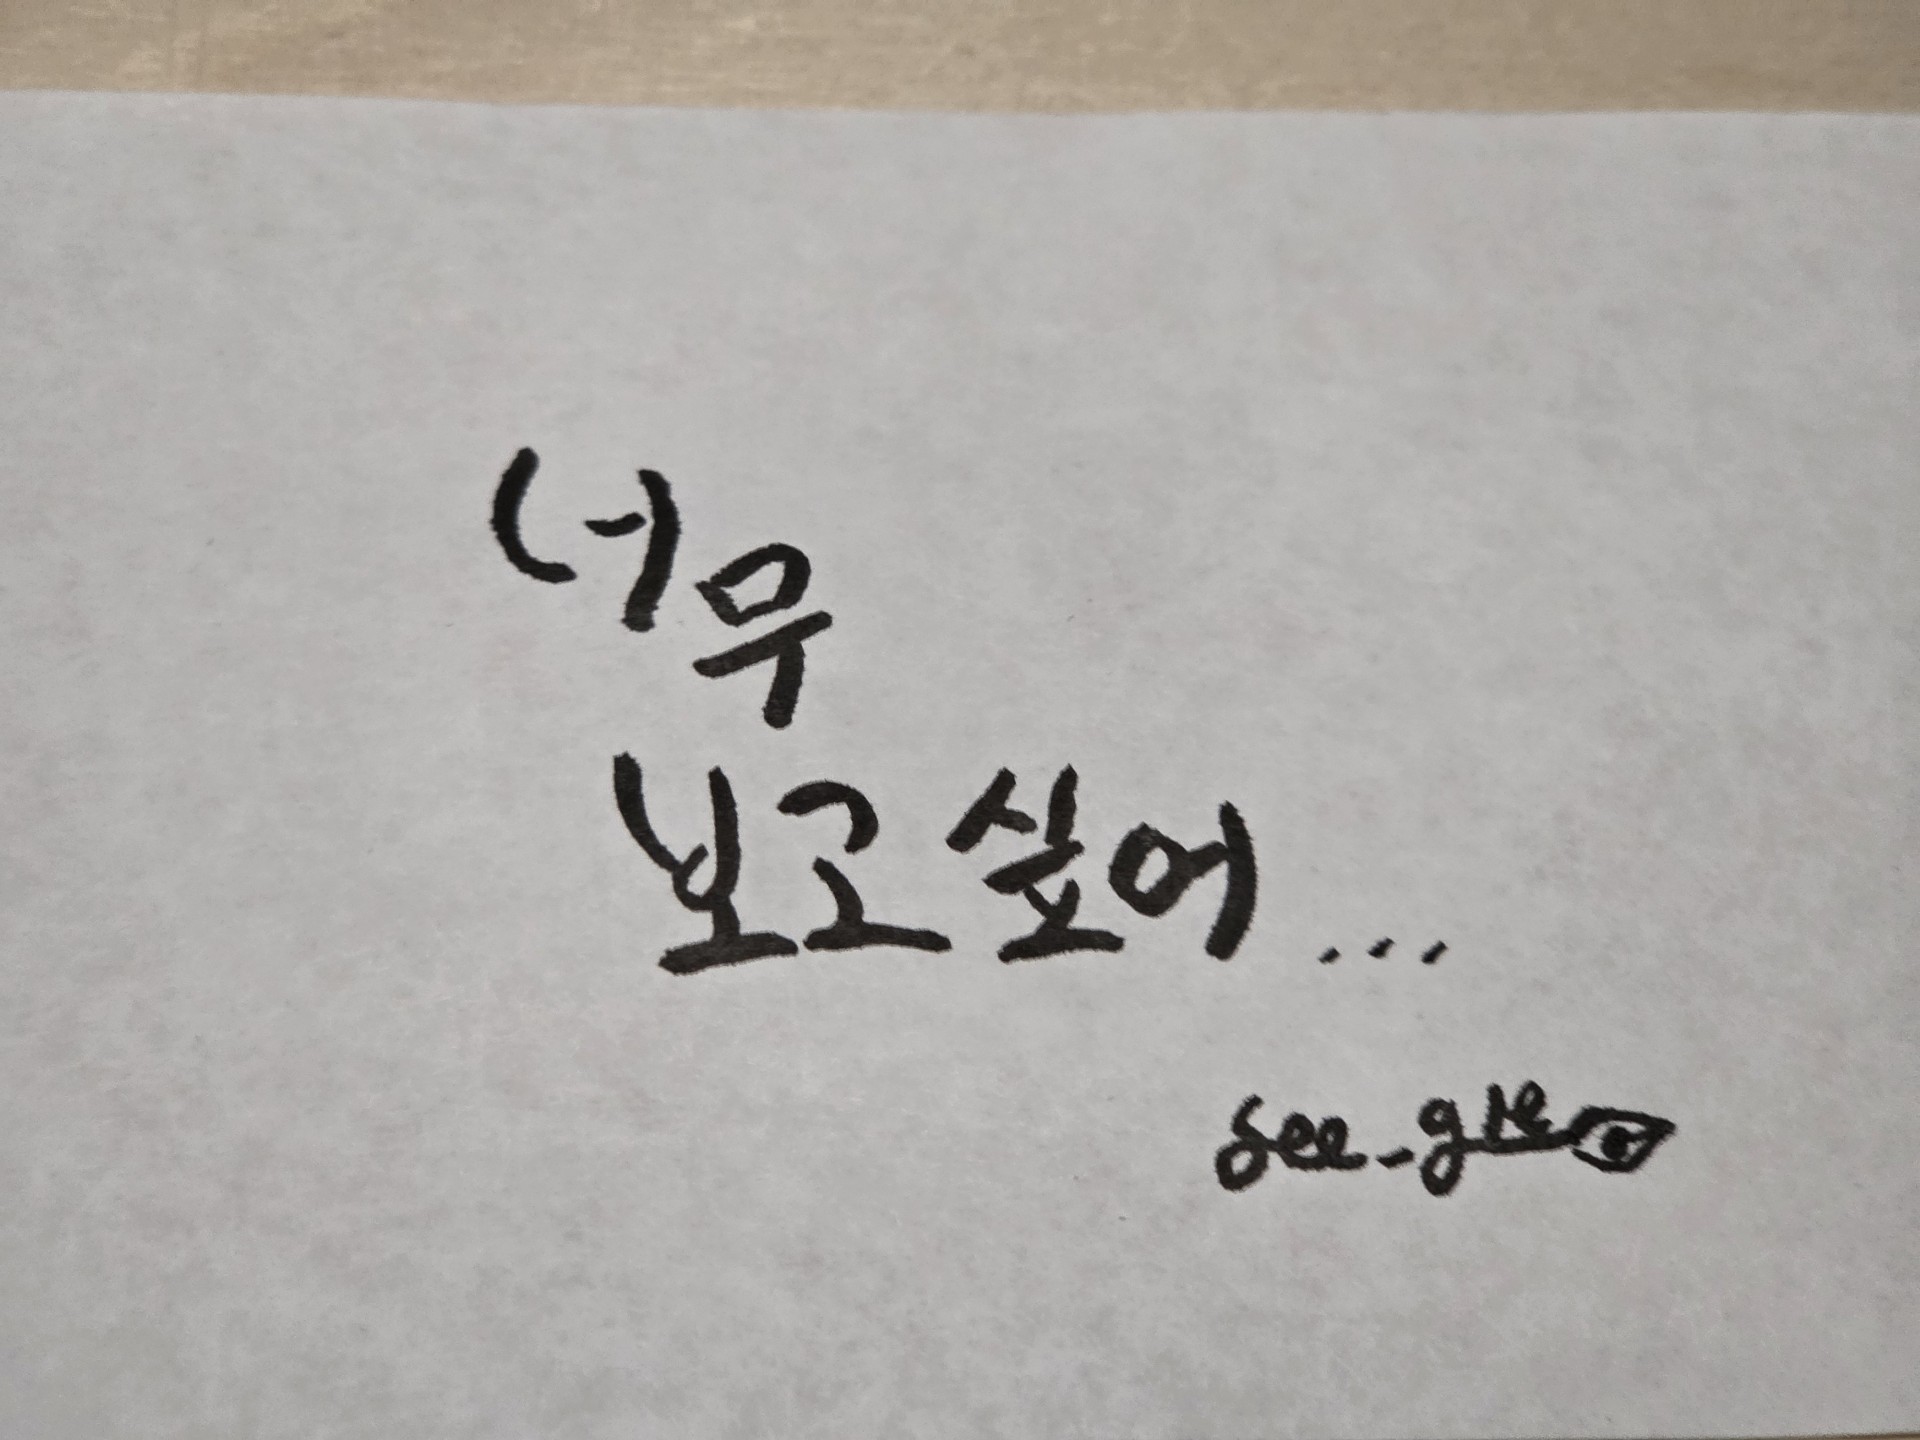 너무
보고싶어...
see_gle